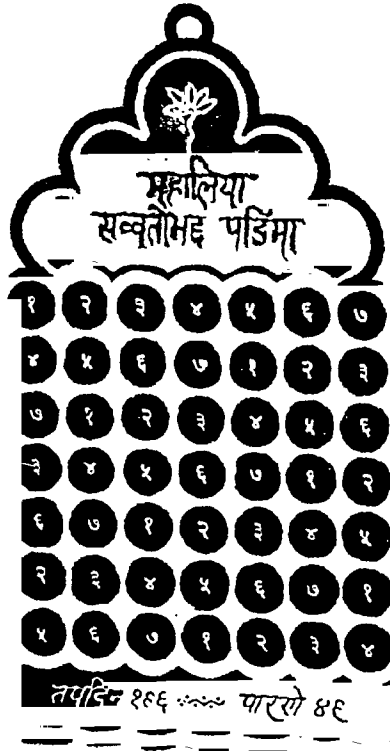 महालिया
सव्वतोभद्द पडिमा
१ २ ३ ४ ५ ६ ७
४ ५ ६ ७ १ २ ३
७ १ २ ३ ४ ५ ६
३ ४ ५ ६ ७ १ २
६ ७ १ २ ३ ४ ५
२ ३ ४ ५ ६ ७ १
५ ६ ७ १ २ ३ ४
तपदिन १९६ पारणे ४९